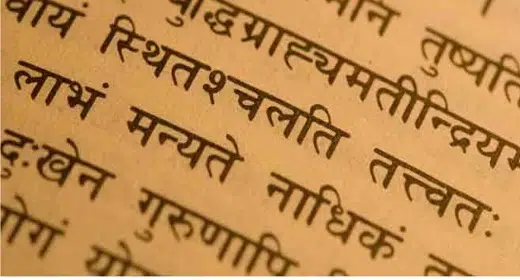 तुष्यति
बुद्धिग्राह्यमतीन्द्रियम
वायं स्थितश्चलति तत्त्वतः
लाभं मन्यते नाधिकं
दुःखेन गुरुणापि